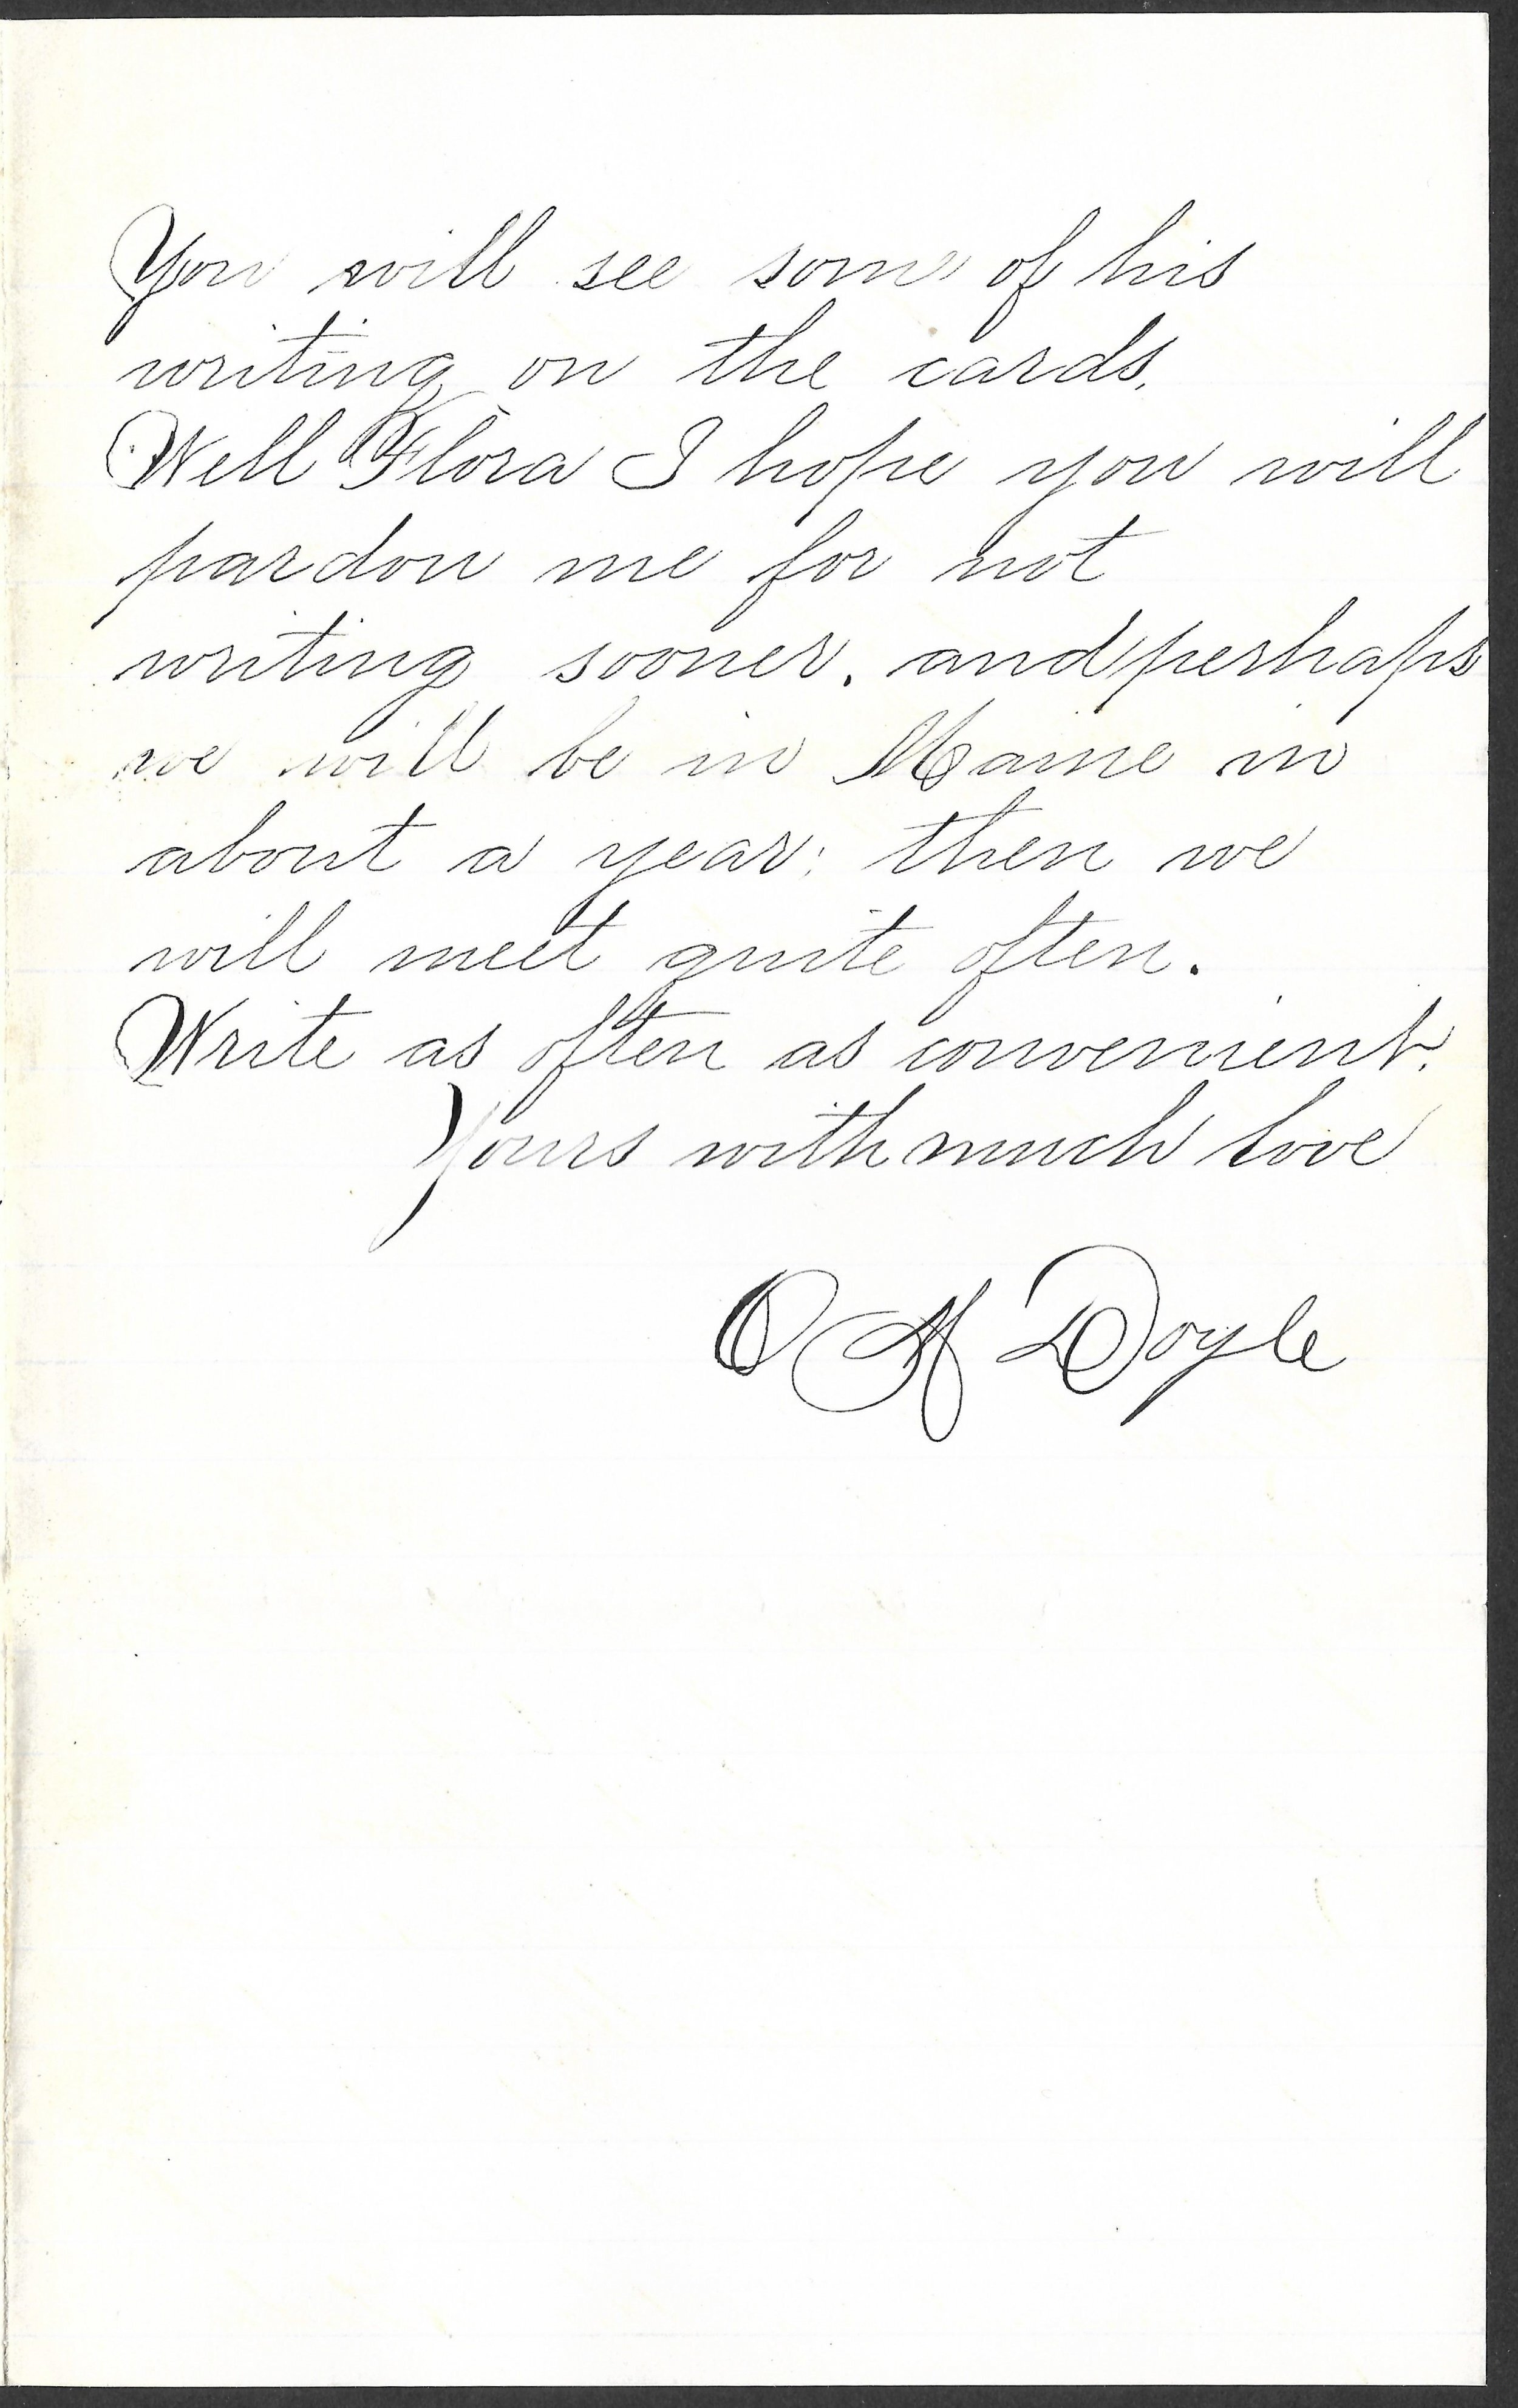 You will see some of his
writing on the cards.
Well Flora I hope you will
pardon me for not
writing sooner. and perhaps
we will be in Maine in
about a year: then we
will meet quite often.
Write as often as convenient.
Yours with much love
Doyle